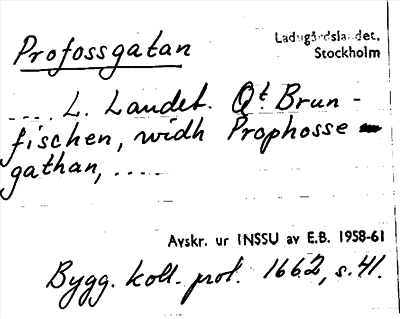 Profossgatan
Ladugårdslandet.
Stockholm
.... L. Landet. Qt Brun-
fischen, widh Prophosse-
gathan, .....
Avskr. ur INSSU av E.B. 1958-61
Bygg. koll. prot. 1662, s. 41.